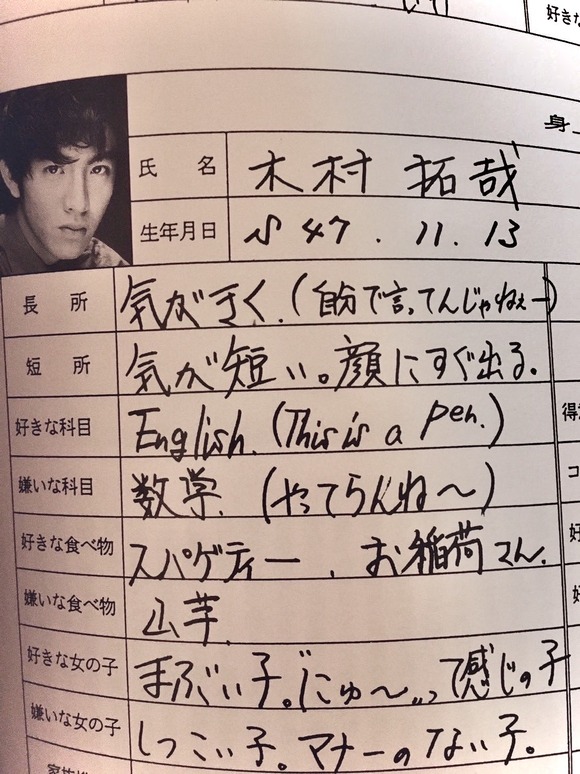 好き
身
氏 名 木村 拓哉
生年月日 S 47. 11. 13
長 所 気がきく.(自分で言ってんじゃねぇー)
短 所 気が短い。顔にすぐ出る。
好きな科目 English. (This is a pen.)
得
嫌いな科目 数学. (やってらんね〜)
コ
好きな食べ物 スパゲティー. お稲荷さん.
好
嫌いな食べ物 山芋.
好
好きな女の子 まぶい子。にゅ〜って感じの子
嫌いな女の子 しつこい子。マナーのない子。